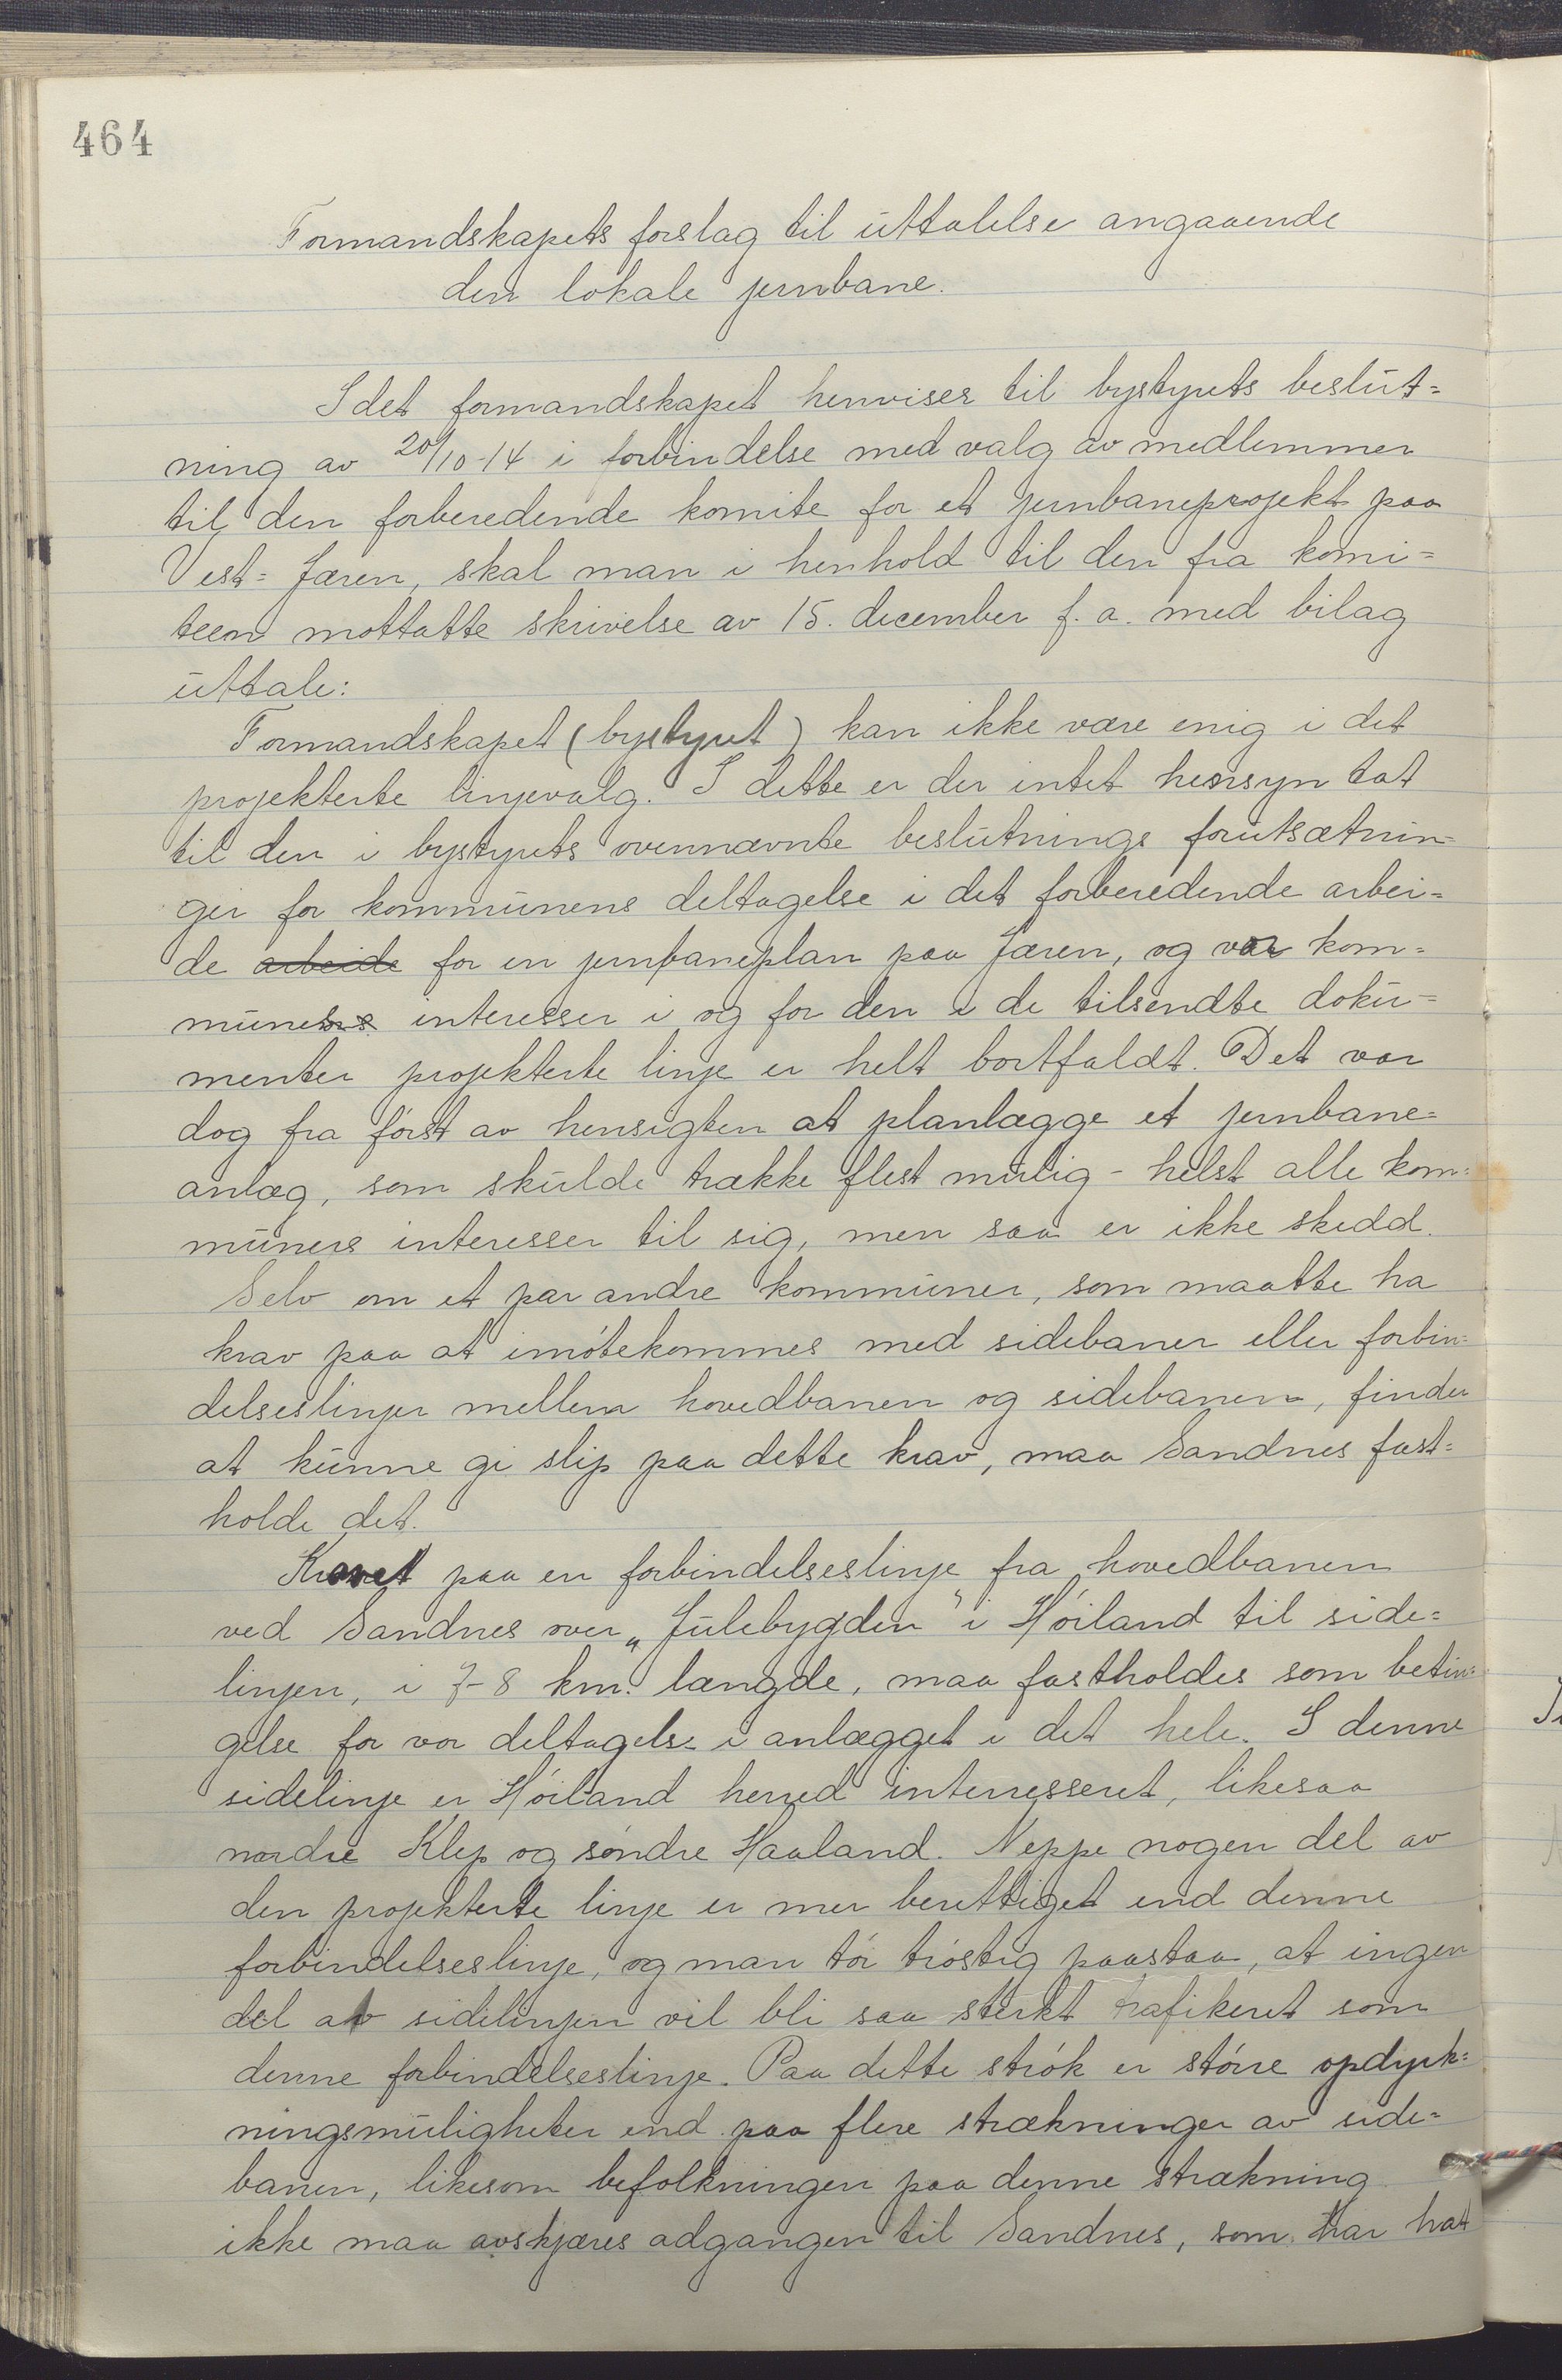 464
Formandskapets forslag til uttalelse angaaende
den lokale jernbane.
Idet formandskapet henviser til bystyrets beslut=
ning av 20/10-14 i forbindelse med valg av medlemmer
til den forberedende komite for et jernbaneprojekt paa
Vest=Jæren, skal man i henhold til den fra komi=
teen mottatte skrivelse av 15. december f. a. med bilag
uttale:
Formandskapet (bystyret) kan ikke være enig i det
projekterte linjevalg. I dette er der intet hensyn tat
til den i bystyrets ovennævnte beslutnings forutsætnin=
ger for kommunens deltagelse i det forberedende arbei=
de arbeide for en jernbaneplan paa Jæren, og vor kom=
munes interesser i og for den i de tilsendte doku=
menter projekterte linje er helt bortfaldt. Det var
dog fra først av hensigten at planlægge et jernbane=
anlæg, som skulde trække flest mulig - helst alle kom=
muners interesser til sig, men saa er ikke skedd.
Selv om et par andre kommuner, som maatte ha
krav paa at imøtekommes med sidebaner eller forbin=
delseslinjer mellem hovedbanen og sidebanen, finder
at kunne gi slip paa dette krav, maa Sandnes fast=
holde det.
Kravet paa en forbindelseslinje fra hovedbanen
ved Sandnes over „Julebygden" i Høiland til side=
linjen, i 7-8 km. længde, maa fastholdes som betin=
gelse for vor deltagelse i anlægget i det hele. I denne
sidelinje er Høiland herred interresseret, likesaa
nordre Klep og søndre Haaland. Neppe nogen del av
den projekterte linje er mer berettiget end denne
forbindelseslinje, og man tør trøstig paastaa, at ingen
del av sidelinjen vil bli saa sterkt trafikeret som
denne forbindelseslinje. Paa dette strøk er større opdyrk=
ningsmuligheter end paa flere strækninger av side=
banen, likesom befolkningen paa denne strækning
ikke maa avskjæres adgangen til Sandnes, som har hat